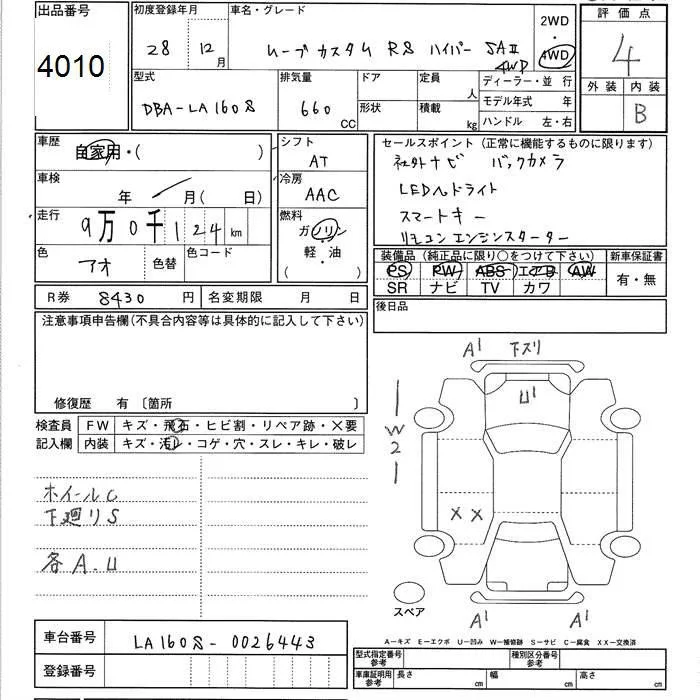 出品番号 初度登録年月 車名・グレード 2WD 評価点
4010 28 年 12 月 ムーブ カスタム RS ハイパー SAⅡ 4WD 4WD 4
型式 排気量 ドア 定員 人 ディーラー・並行 外装 内装
DBA-LA160S 660 CC 形状 積載 kg モデル年式 年 B
ハンドル 左・右
車歴 自家用・( ) シフト AT セールスポイント(正常に機能するものに限ります)
社外ナビ バックカメラ
車検 年 月(日) 冷房 AAC LEDヘッドライト
走行 9万0千124km 燃料 ガソリン スマートキー
軽・油 リモコンエンジンスターター
色 アオ 色替 色コード ( ) 装備品(純正品に限り○をつけて下さい) 新車保証書
PS PW ABS エアB AW 有・無
SR ナビ TV カワ
R券 8430 円 名変期限 月 日 後日品
注意事項申告欄(不具合内容等は具体的に記入して下さい)
修復歴 有 〔箇所 〕
検査員 FW キズ・飛石・ヒビ割・リペア跡・×要
記入欄 内装 キズ・汚レ・コゲ・穴・スレ・キレ・破レ
A1 下スリ
U1
W2
ホイールC
下廻りS
X X
各A.U
スペア
A1 A1
A-キズ E-エクボ U-凹み W-補修跡 S-サビ C-腐食 XX-交換済
車台番号 LA160S-0026443
型式指定番号 参考 種別区分番号 参考
登録番号
車庫証明用 参考 長さ cm 幅 cm 高さ cm